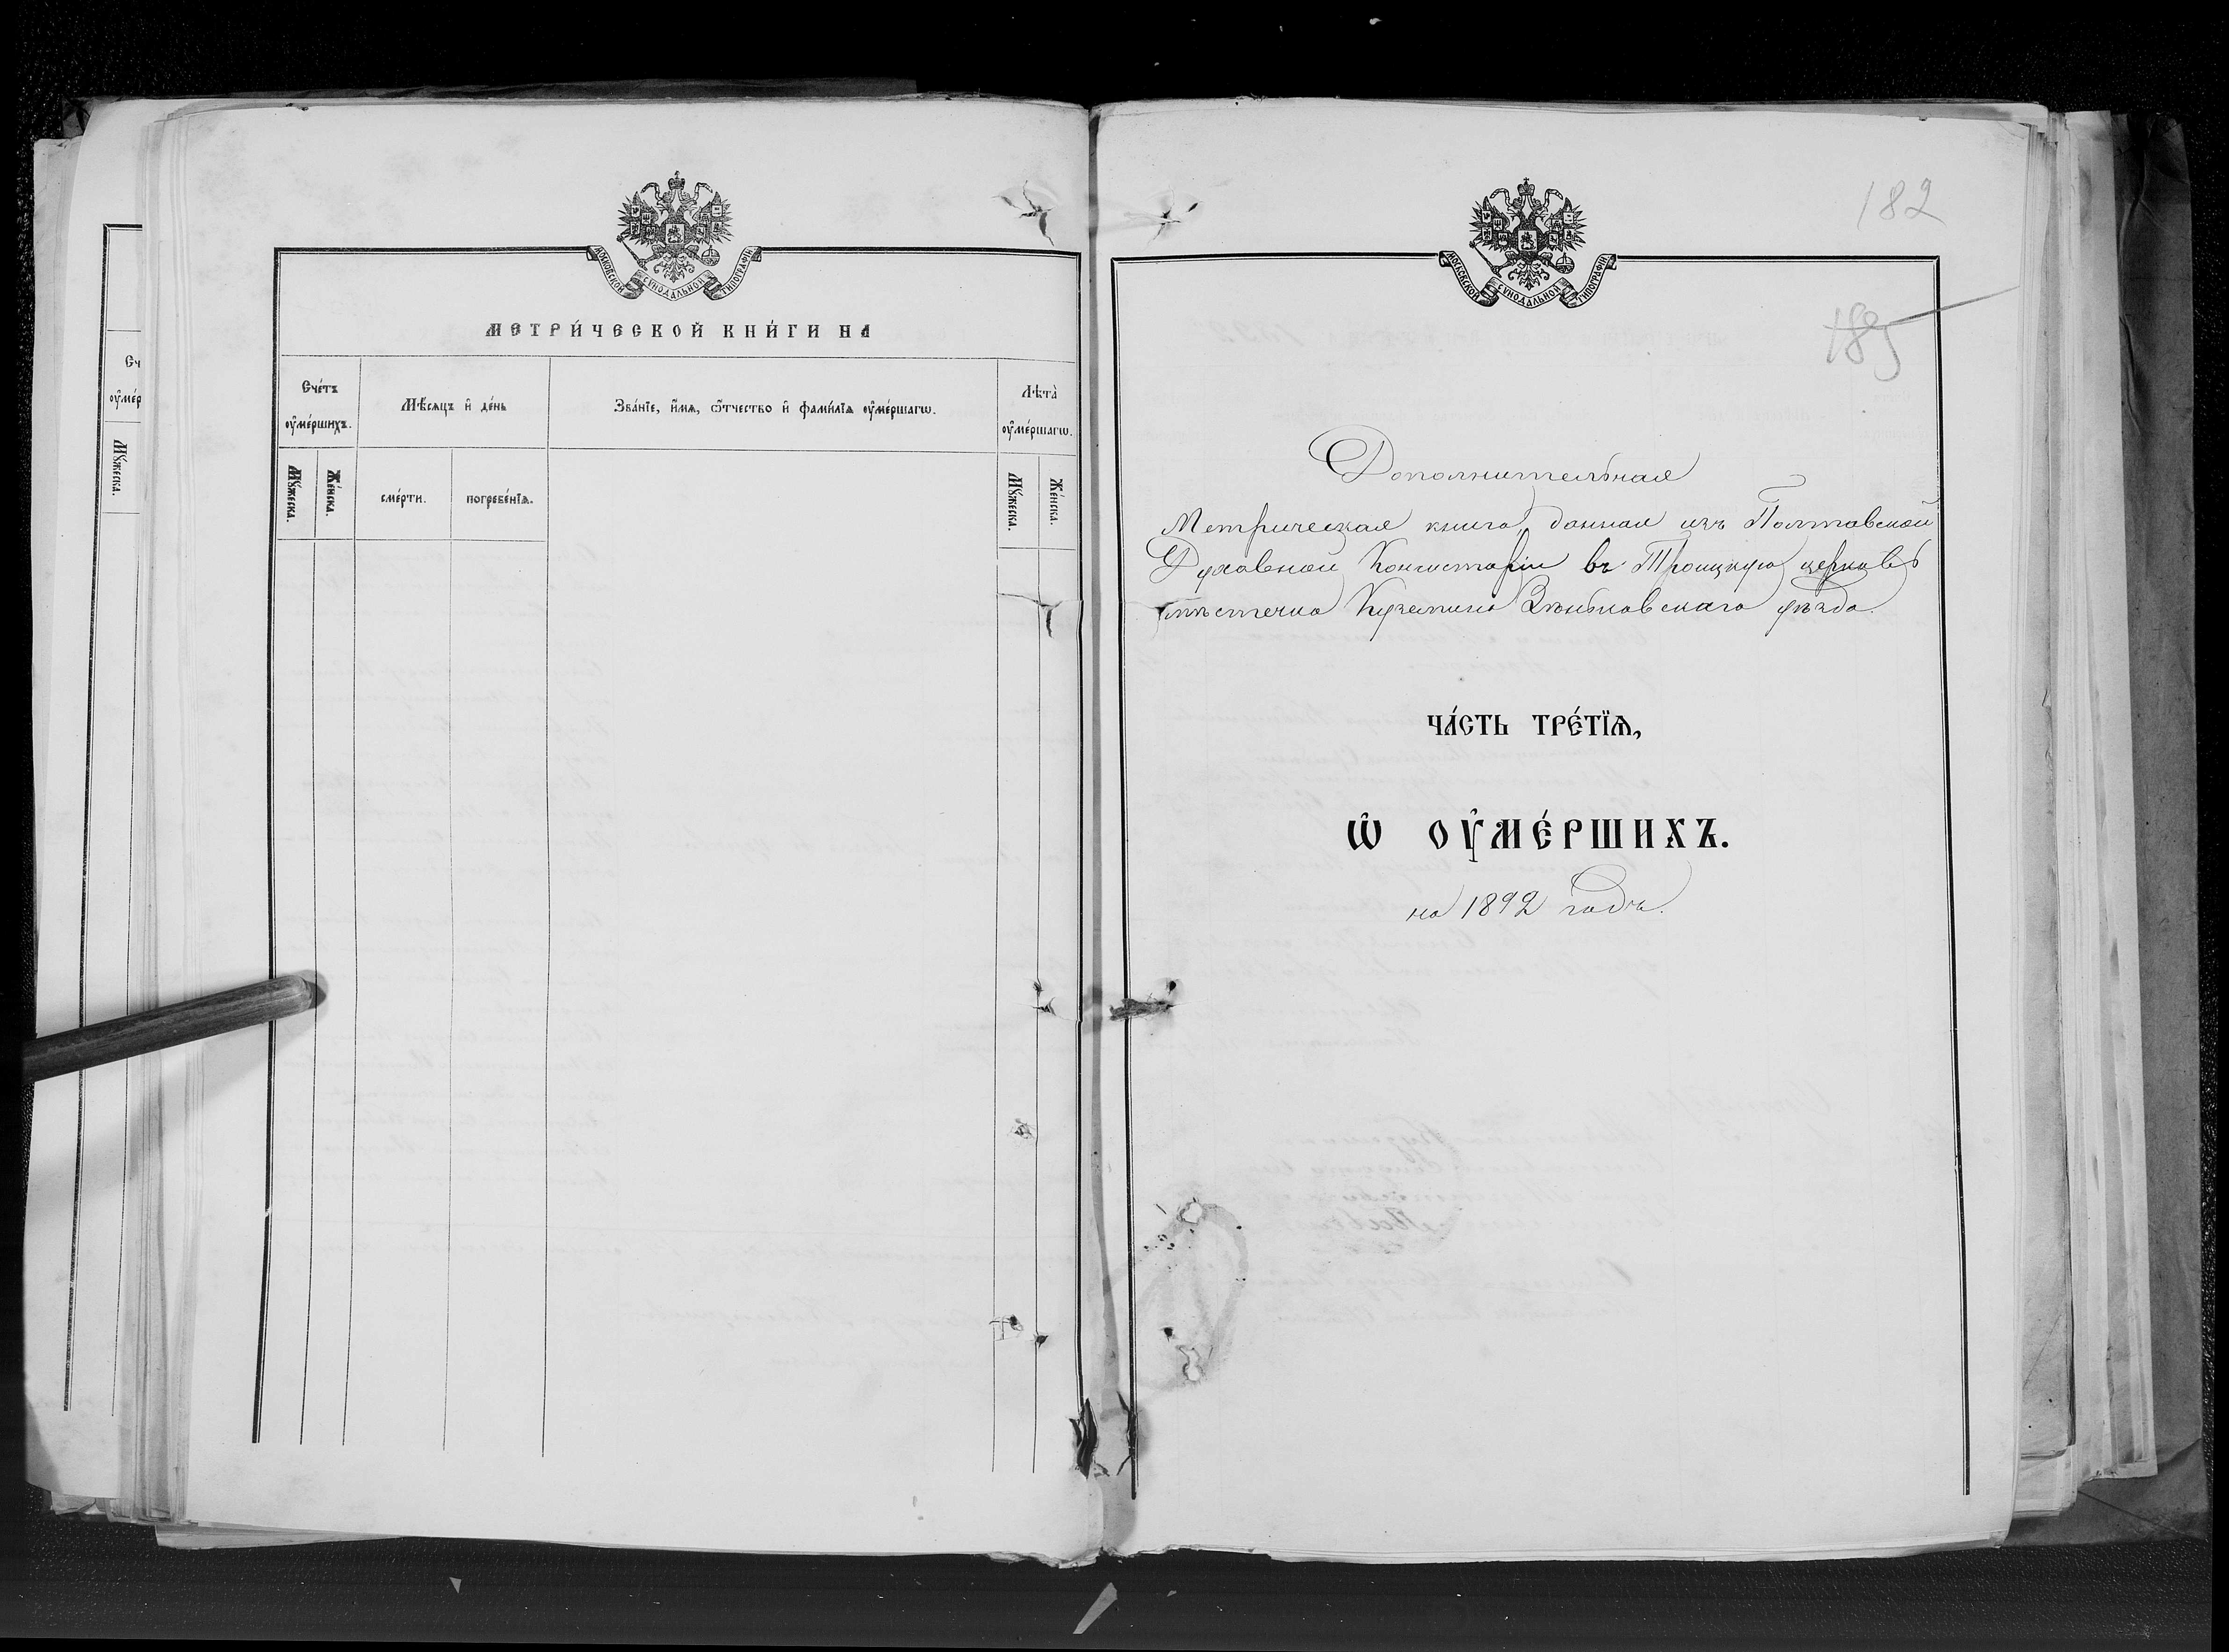 Сч
оу҆мер
Мꙋ́жеска.
МОСКОВСКОЙ СѴНОДАЛЬНОЙ ТИПОГРАФІИ
МЕТРИ́ЧЕСКОЙ КНИ́ГИ НА
Сче́тъ
оу҆ме́ршихъ.
Мѣ́сяцъ и҆ де́нь
Зва́нїе, и҆́мѧ, ѻ҆́тчество и҆ фами́лїѧ оу҆ме́ршагѡ.
Лѣта̀
оу҆ме́ршагѡ.
Мꙋ́жеска.
Же́нска.
сме́рти.
погребе́нїѧ.
Мꙋ́жеска.
Же́нска.
182
МОСКОВСКОЙ СѴНОДАЛЬНОЙ ТИПОГРАФІИ
185
Дополнительная
Метрическая книга, данная изъ Полтавской
Духовной Консисторіи въ Троицкую церковь
мѣстечка Куземина Зѣньковскаго уѣзда.
ЧА́СТЬ ТРЕ́ТЇѦ,
Ѡ҆ ОУ҆МЕ́РШИХЪ.
на 1892 годъ.